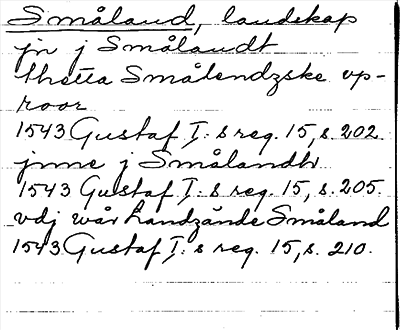 Småland, landskap
jn j Smålandt
thetta Smålendzske vp-
roor
1543 Gustaf I: s reg. 15, s. 202.
jnne j Smålandh
1543 Gustaf I: s reg. 15, s. 205.
vdj wår handzände Småland
1543 Gustaf I: s reg. 15, s. 210.